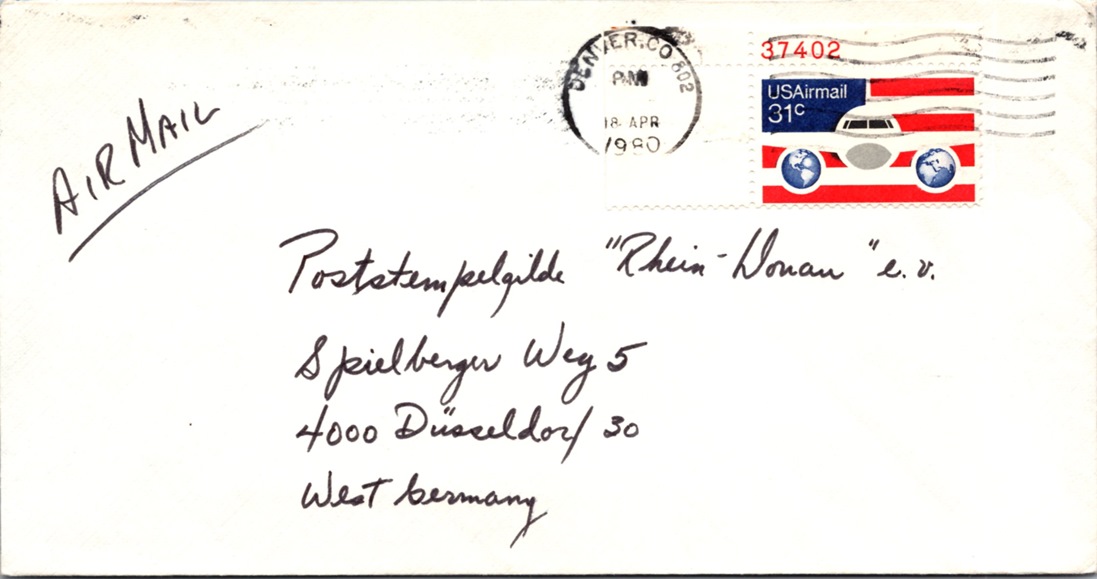 DENVER, CO 802
PM
18 APR
1980
37402
USAirmail
31c
AIR MAIL
Poststempelgilde "Rhein-Donau" e.v.
Spielberger Weg 5
4000 Düsseldorf 30
West Germany